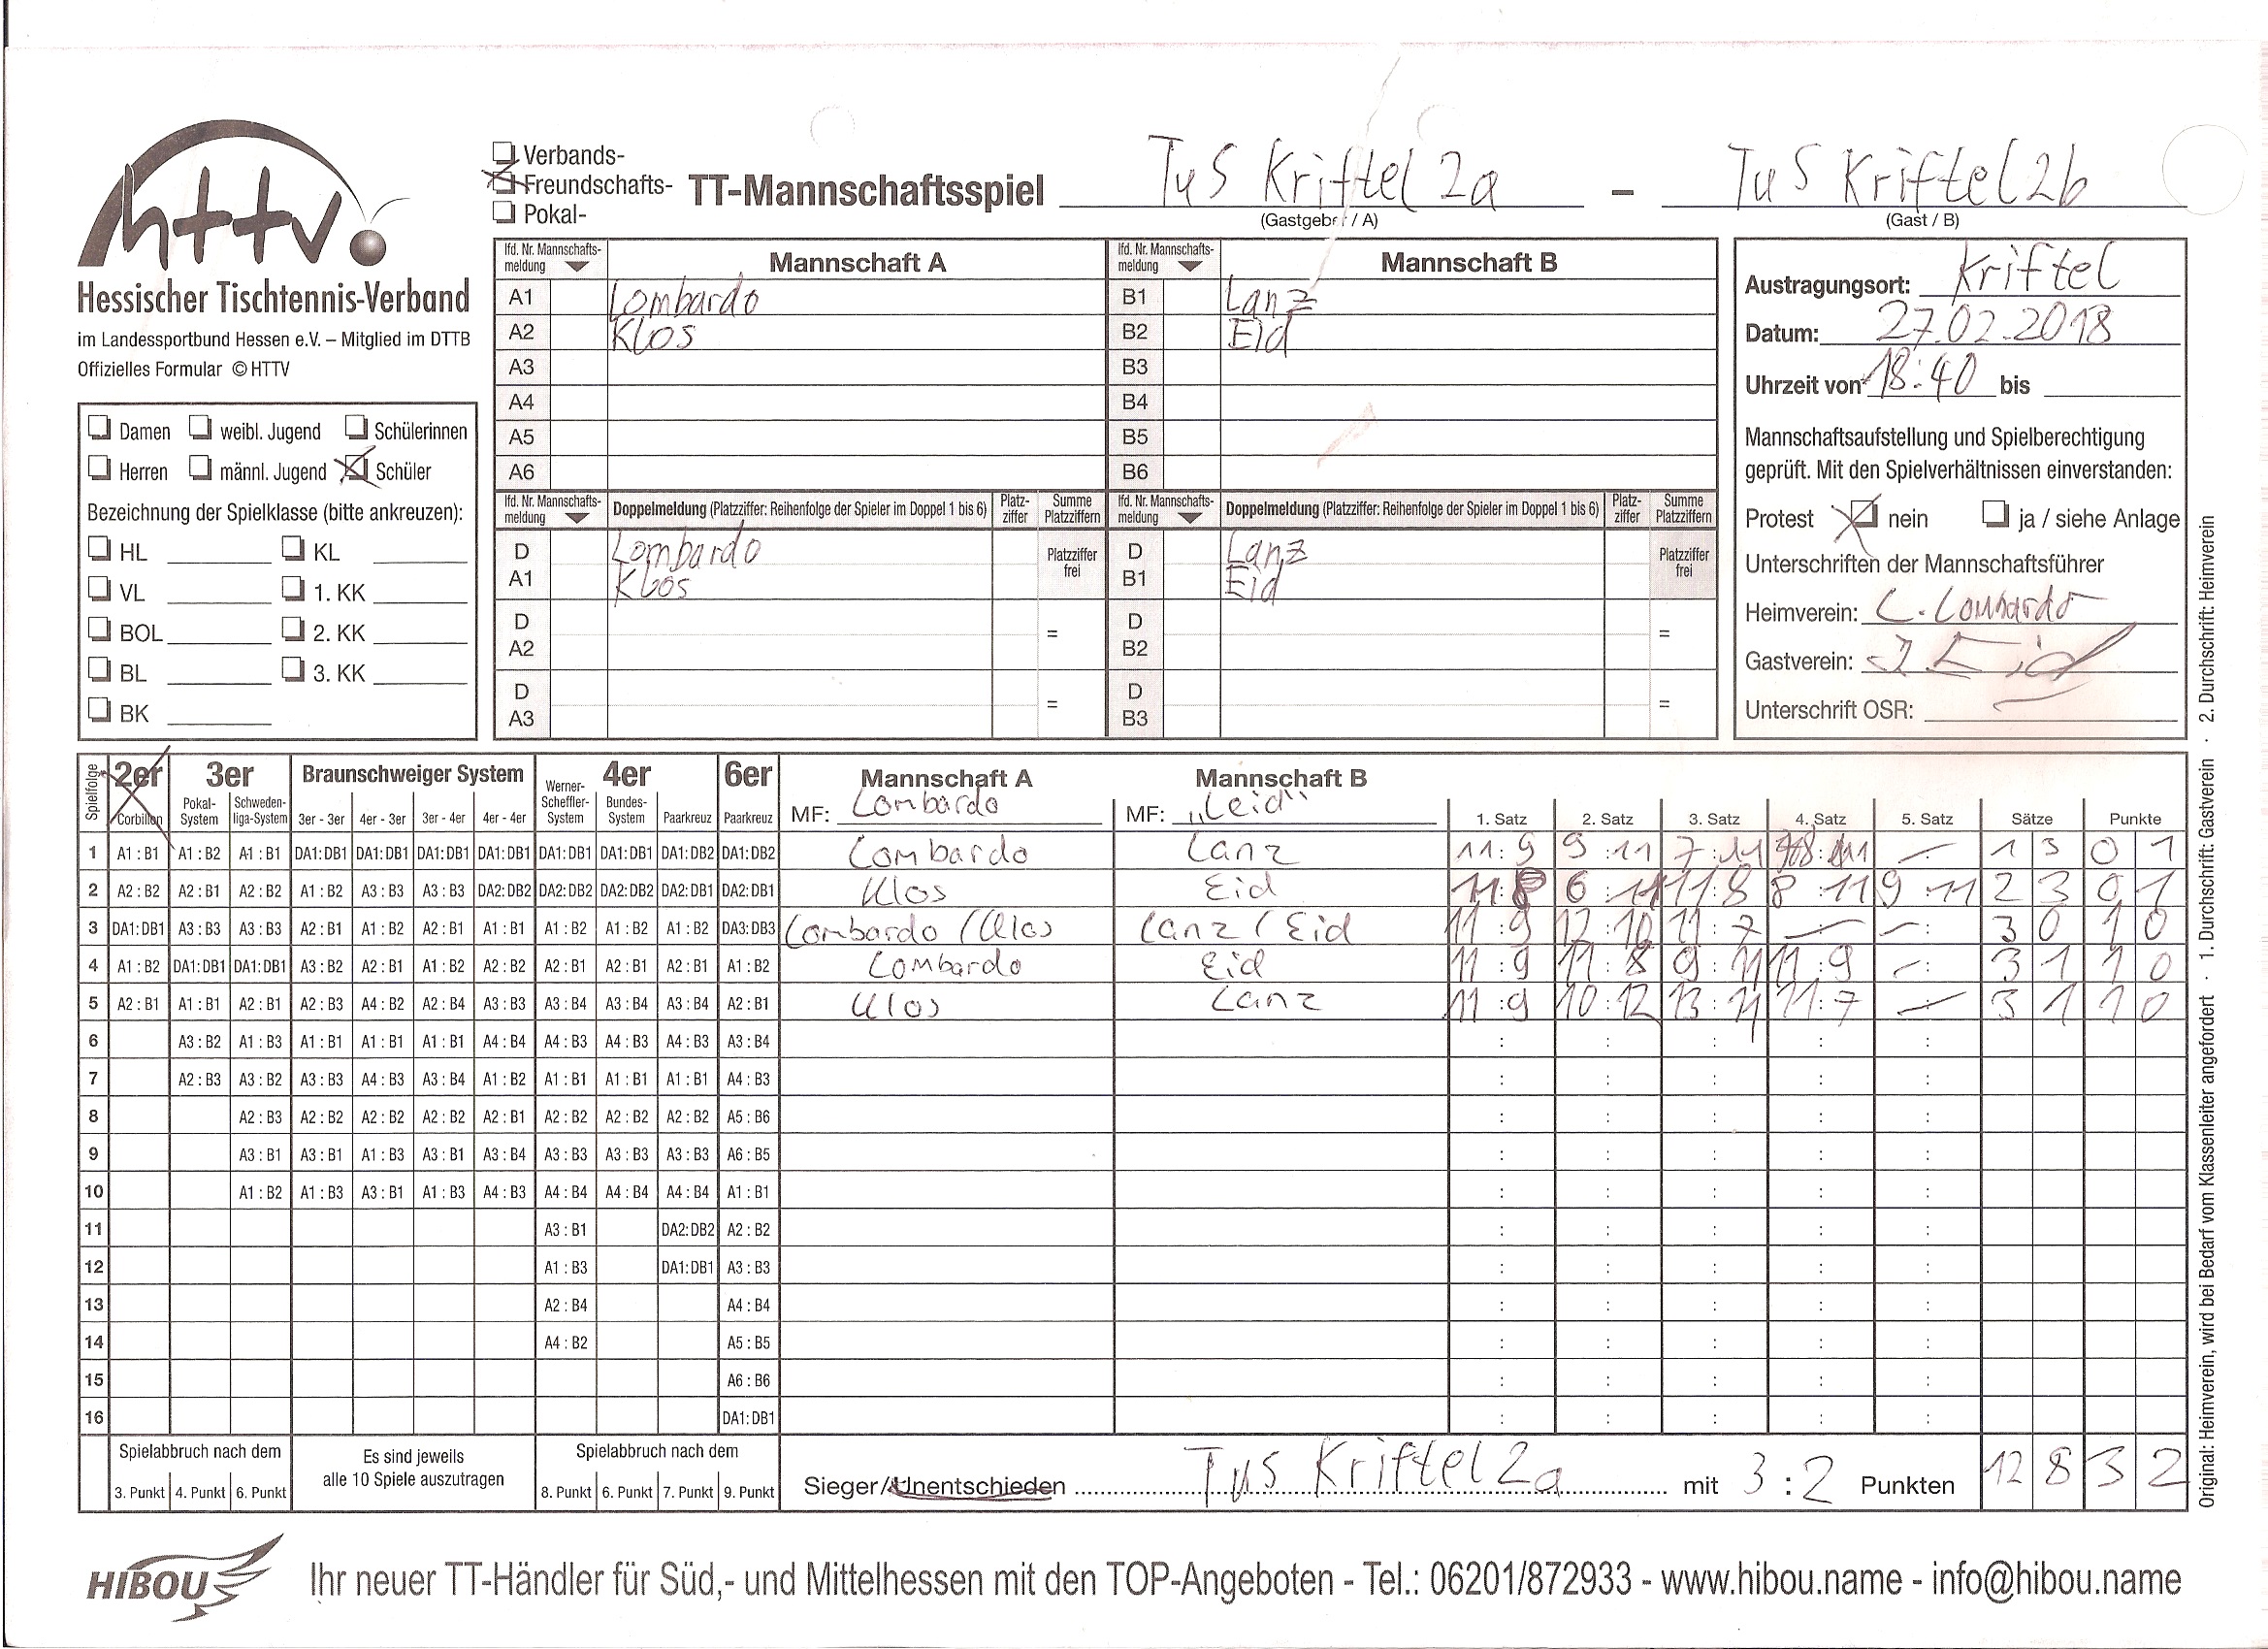 httv
Hessischer Tischtennis-Verband
im Landessportbund Hessen e.V. – Mitglied im DTTB
Offizielles Formular © HTTV
Verbands-
Freundschafts-
Pokal-
TT-Mannschaftsspiel TuS Kriftel 2a – TuS Kriftel 2b
(Gastgeber / A) (Gast / B)
lfd. Nr. Mannschafts-meldung Mannschaft A lfd. Nr. Mannschafts-meldung Mannschaft B
A1 Lombardo B1 Lanz
A2 Klos B2 Eid
A3 B3
A4 B4
A5 B5
A6 B6
lfd. Nr. Mannschafts-meldung Doppelmeldung (Platzziffer: Reihenfolge der Spieler im Doppel 1 bis 6) Platz-ziffer Summe Platzziffern lfd. Nr. Mannschafts-meldung Doppelmeldung (Platzziffer: Reihenfolge der Spieler im Doppel 1 bis 6) Platz-ziffer Summe Platzziffern
D Lombardo Platzziffer D Lanz Platzziffer
A1 Klos frei B1 Eid frei
D = D =
A2 B2
D = D =
A3 B3
Austragungsort: Kriftel
Datum: 27.02.2018
Uhrzeit von 18:40 bis
Mannschaftsaufstellung und Spielberechtigung
geprüft. Mit den Spielverhältnissen einverstanden:
Protest nein ja / siehe Anlage
Unterschriften der Mannschaftsführer
Heimverein: C. Lombardo
Gastverein: J Eid
Unterschrift OSR:
Damen weibl. Jugend Schülerinnen
Herren männl. Jugend Schüler
Bezeichnung der Spielklasse (bitte ankreuzen):
HL KL
VL 1. KK
BOL 2. KK
BL 3. KK
BK
Spielfolge 2er 3er Braunschweiger System 4er 6er Mannschaft A Mannschaft B
Corbillon Pokal-System Schweden-liga-System 3er - 3er 4er - 3er 3er - 4er 4er - 4er Werner-Scheffler-System Bundes-System Paarkreuz Paarkreuz MF: Lombardo MF: „Leid“ 1. Satz 2. Satz 3. Satz 4. Satz 5. Satz Sätze Punkte
1 A1 : B1 A1 : B2 A1 : B1 DA1: DB1 DA1: DB1 DA1: DB1 DA1: DB1 DA1: DB1 DA1: DB1 DA1: DB2 DA1: DB2 Lombardo Lanz 11:9 9:11 7:11 8:11 – 1 3 0 1
2 A2 : B2 A2 : B1 A2 : B2 A1 : B2 A3 : B3 A3 : B3 DA2: DB2 DA2: DB2 DA2: DB2 DA2: DB1 DA2: DB1 Klos Eid 11:8 6:11 11:8 8:11 9:11 2 3 0 1
3 DA1: DB1 A3 : B3 A3 : B3 A2 : B1 A1 : B2 A2 : B1 A1 : B1 A1 : B2 A1 : B2 A1 : B2 DA3: DB3 Lombardo / Klos Lanz / Eid 11:9 12:10 11:7 – – 3 0 1 0
4 A1 : B2 DA1: DB1 DA1: DB1 A3 : B2 A2 : B1 A1 : B2 A2 : B2 A2 : B1 A2 : B1 A2 : B1 A1 : B2 Lombardo Eid 11:9 11:8 9:11 11:9 – 3 1 1 0
5 A2 : B1 A1 : B1 A2 : B1 A2 : B3 A4 : B2 A2 : B4 A3 : B3 A3 : B4 A3 : B4 A3 : B4 A2 : B1 Klos Lanz 11:9 10:12 13:11 11:7 – 3 1 1 0
6 A3 : B2 A1 : B3 A1 : B1 A1 : B1 A1 : B1 A4 : B4 A4 : B3 A4 : B3 A4 : B3 A3 : B4 : : : : :
7 A2 : B3 A3 : B2 A3 : B3 A4 : B3 A3 : B4 A1 : B2 A1 : B1 A1 : B1 A1 : B1 A4 : B3 : : : : :
8 A2 : B3 A2 : B2 A2 : B2 A2 : B2 A2 : B1 A2 : B2 A2 : B2 A2 : B2 A5 : B6 : : : : :
9 A3 : B1 A3 : B1 A1 : B3 A3 : B1 A3 : B4 A3 : B3 A3 : B3 A3 : B3 A6 : B5 : : : : :
10 A1 : B2 A1 : B3 A3 : B1 A1 : B3 A4 : B3 A4 : B4 A4 : B4 A4 : B4 A1 : B1 : : : : :
11 A3 : B1 DA2: DB2 A2 : B2 : : : : :
12 A1 : B3 DA1: DB1 A3 : B3 : : : : :
13 A2 : B4 A4 : B4 : : : : :
14 A4 : B2 A5 : B5 : : : : :
15 A6 : B6 : : : : :
16 DA1: DB1 : : : : :
Spielabbruch nach dem Es sind jeweils Spielabbruch nach dem
3. Punkt 4. Punkt 6. Punkt alle 10 Spiele auszutragen 8. Punkt 6. Punkt 7. Punkt 9. Punkt
Sieger/Unentschieden TuS Kriftel 2a mit 3 : 2 Punkten 12 8 3 2
Original: Heimverein, wird bei Bedarf vom Klassenleiter angefordert · 1. Durchschrift: Gastverein · 2. Durchschrift: Heimverein
HIBOU Ihr neuer TT-Händler für Süd,- und Mittelhessen mit den TOP-Angeboten - Tel.: 06201/872933 - www.hibou.name - info@hibou.name